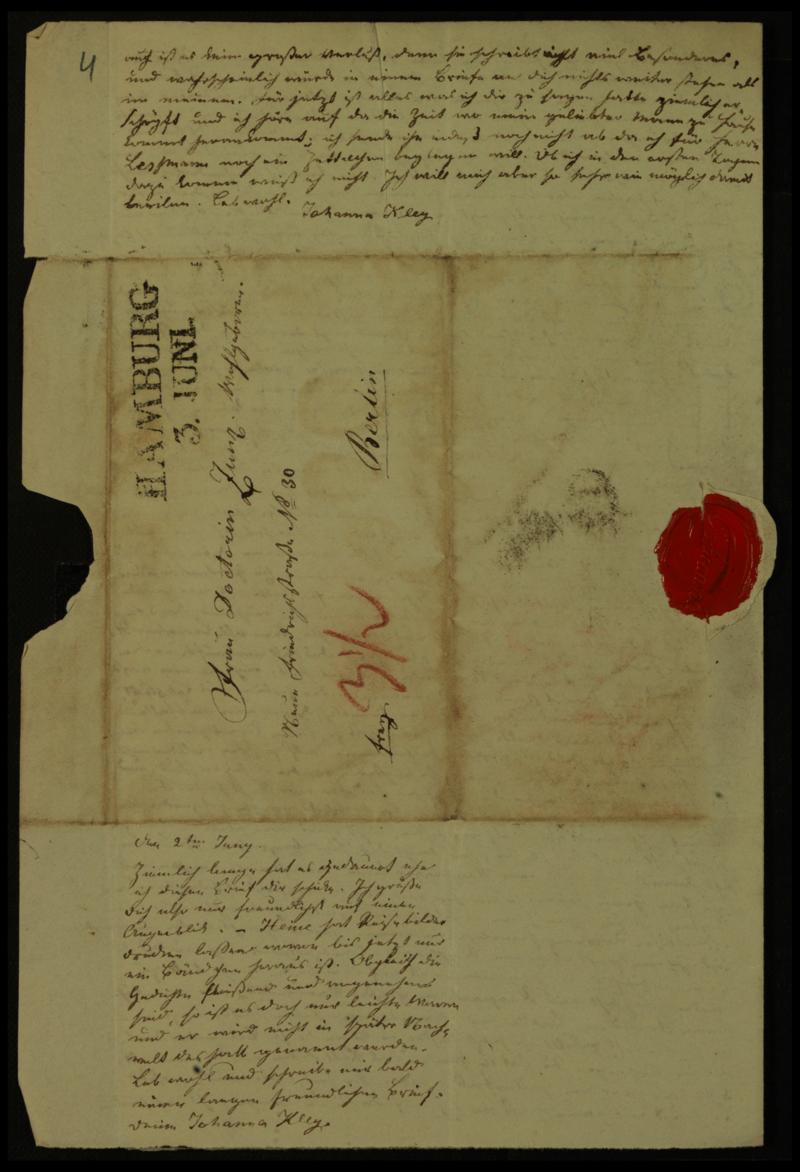 4
auch ist es kein großer Verlust, denn sie schreibt nicht viel Besonderes,
und wahrscheinlich würde in einem Briefe an dich nichts weiter stehen als
in meinem. Für jetzt ist alles was ich dir zu sagen hatte ziemlich er
schöpft und ich höre auf da die Zeit wo mein geliebter Mann zu Hause
kommt herankommt; ich sende ihn indeß noch nicht ab da ich für Herrn
Lessmann noch ein Zettelchen beylegen will. Ob ich in den ersten Tagen
dazu komme weiß ich nicht. Ich will mich aber so sehr wie möglich damit
beeilen. Leb wohl.
Johanna Kley
HAMBURG
3. JUNI.
Frau Doctorin Zunz. Wohlgeboren.
Neue Friedrichstraße No 30
Berlin
frey
den 2ten Juny.
Ziemlich lange hat es gedauert ehe
ich diesen Brief dir schicke. Ich grüße
dich also nur freundlichst auf einen
Augenblick. – Heine hat Reisebilder
drucken lassen wovon bis jetzt nur
ein Bändchen heraus ist. Obgleich die
Gedichte fließend und angenehm
sind, so ist es doch nur leichte Waare
und er wird nicht in später Nach,
welt deshalb genannt werden.
Leb wohl und schreibe mir bald
einen langen freundlichen Brief.
Deine Johanna Kley.